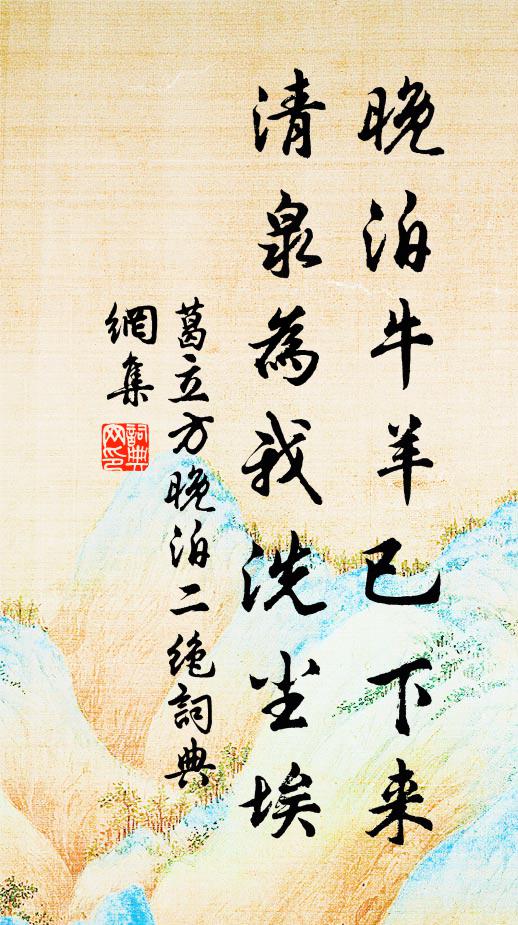 晚泊牛羊已下来
清泉為我洗尘埃
葛立方晚泊二绝詞典
網集
詞典网印